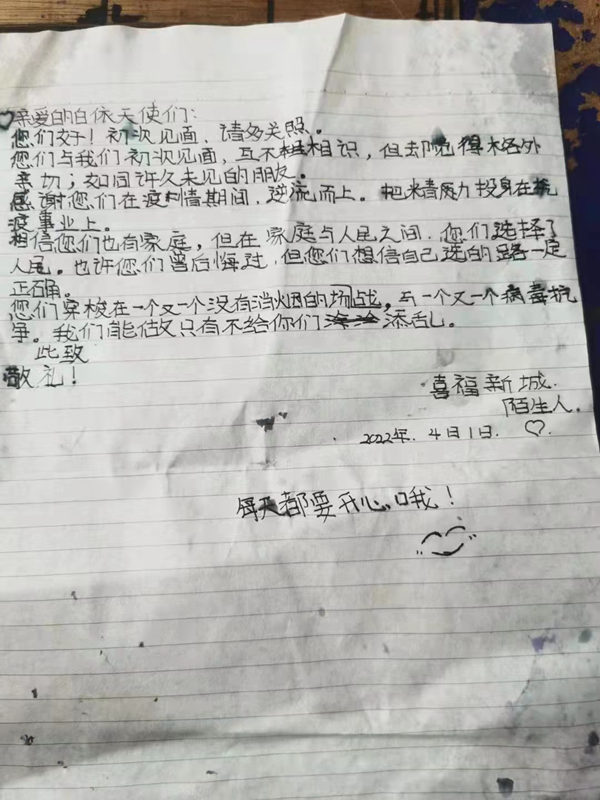 ♡亲爱的白依天使们：
您们好！初次见面，请多关照。
您们与我们初次见面，互不相识，但却觉得格外
亲切；如同许久未见的朋友。
感谢您们在疫情期间，逆流而上。把精力投身在抗
疫事业上。
相信您们也有家庭，但在家庭与人民之间，您们选择了
人民。也许您们曾后悔过，但您们想信自己选的路一定
正确。
您们穿梭在一个又一个没有消烟的场战，与一个又一个病毒抗
争。我们能做只有不给你们添乱。
此致
敬礼！
喜福新城.
陌生人.
2022年.4日1日.♡.
每天都要开心哦！